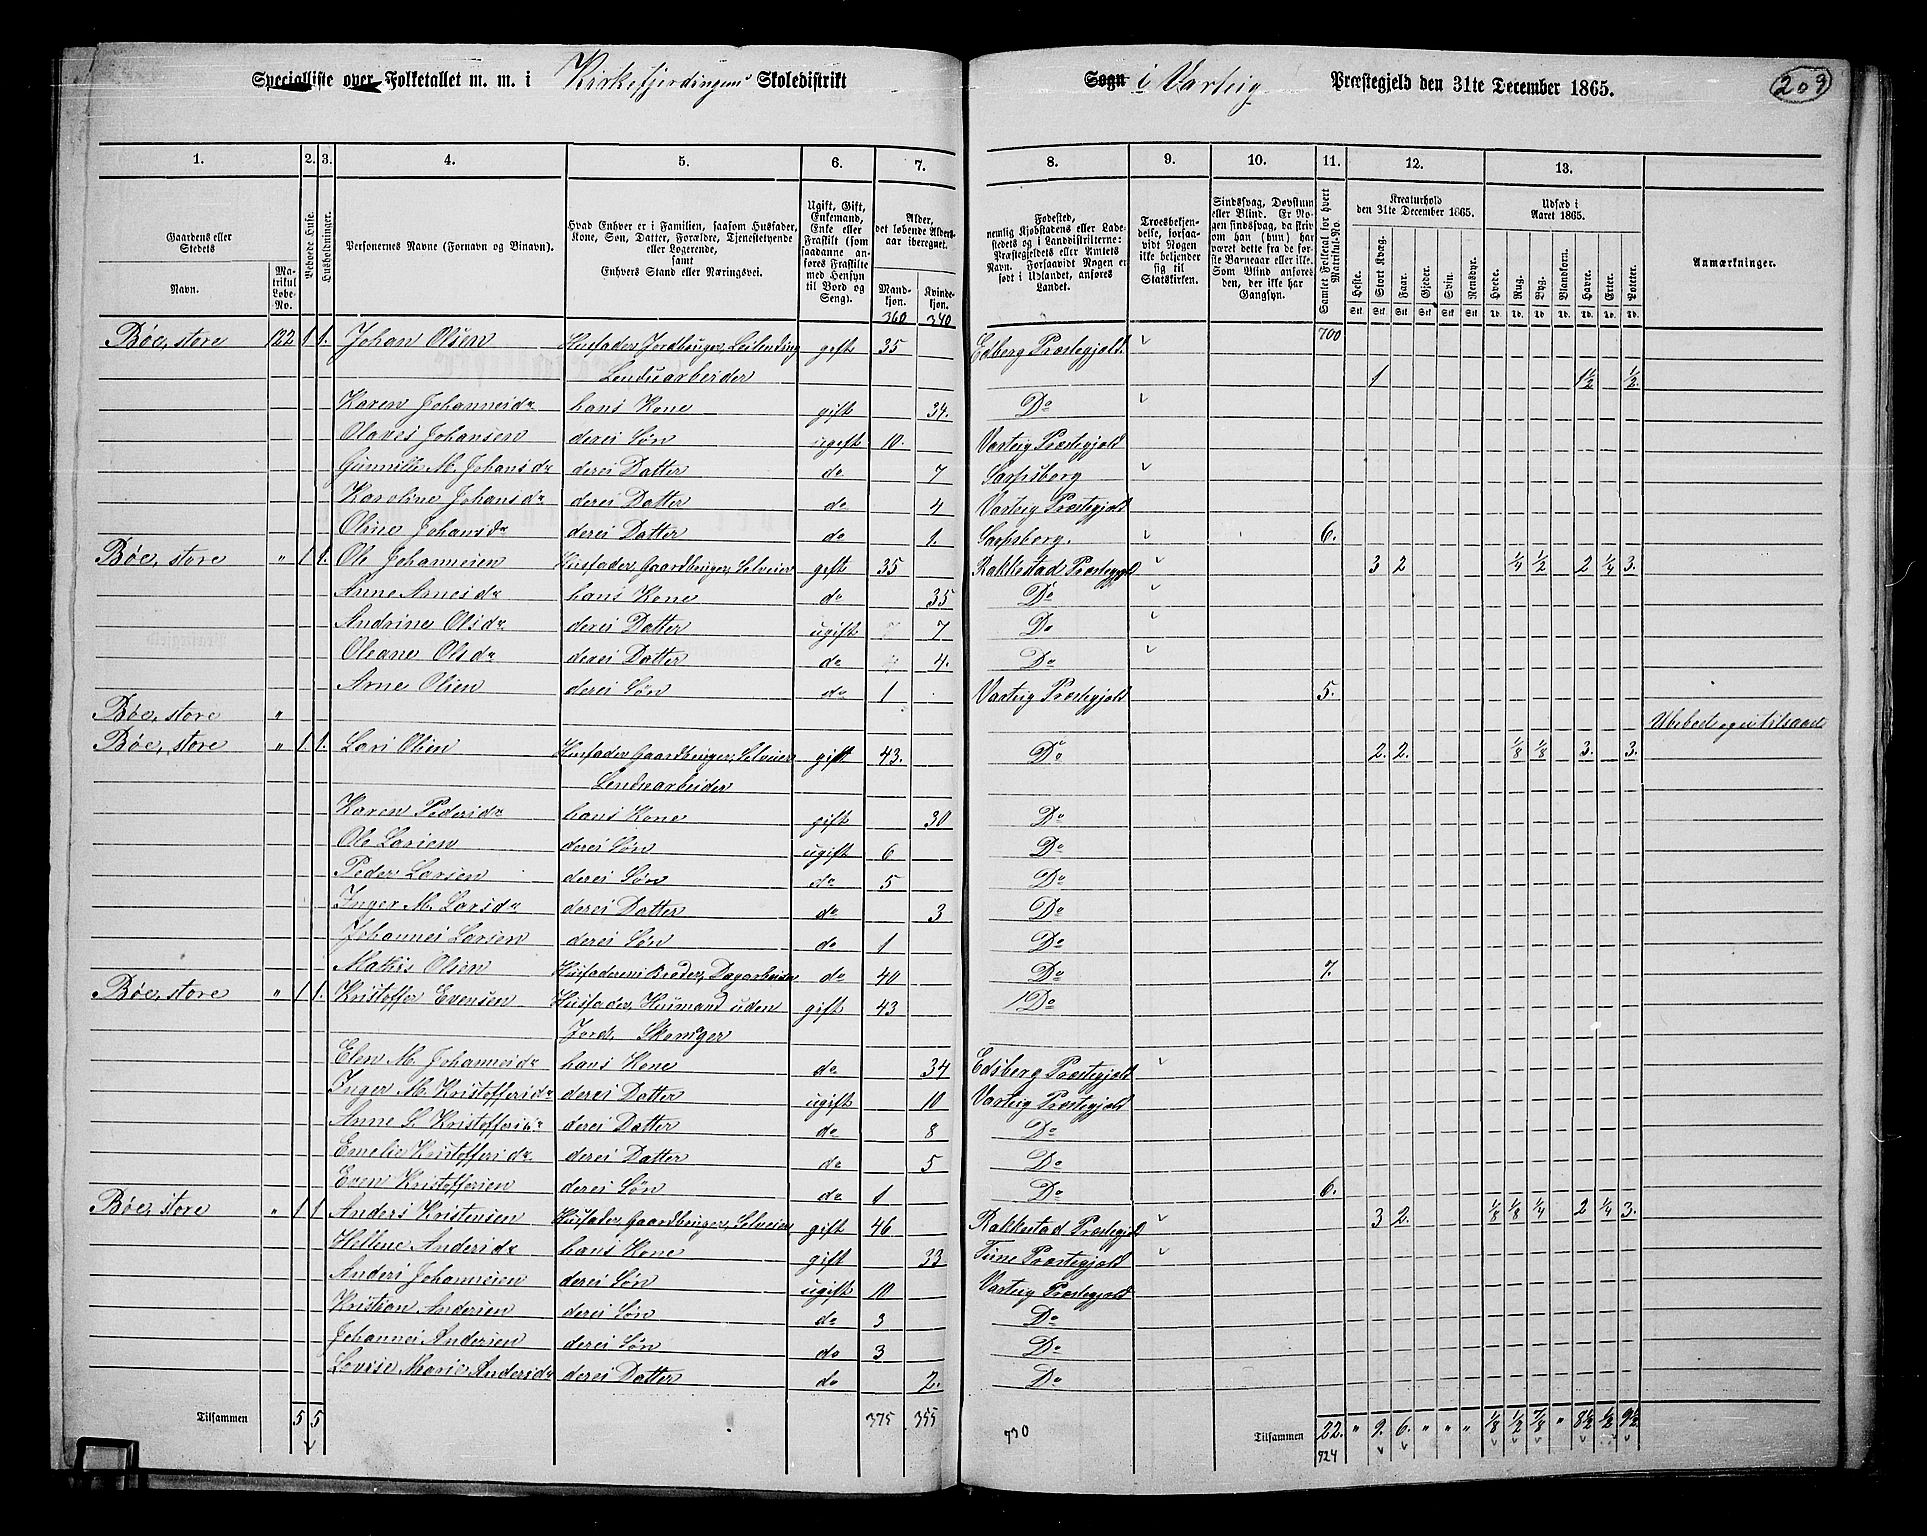 Specialliste over Folketallet m. m. i Kirkefjerdingens Skoledistrikt Sogn i Varteig Præstegjeld den 31te December 1865. 209
1. 2. 3. 4. 5. 6. 7. 8. 9. 10. 11. 12. 13.
Gaardens eller Stedets Navn. Matrikul Løbe-No. Beboede Huse. Husholdninger. Personernes Navne (Fornavn og Binavn). Hvad Enhver er i Familien, saasom Husfader, Kone, Søn, Datter, Forældre, Tjenestetyende eller Logerende, samt Enhvers Stand eller Næringsvei. Ugift, Gift, Enkemand, Enke eller Fraskilt (som saadanne anføres Fraskilte med Hensyn til Bord og Seng). Alder, det løbende Aldersaar iberegnet. Mandkjøn. Kvindekjøn. Fødested, nemlig Kjøbstadens eller Ladestedets og i Landdistrikterne: Præstegjeldets eller Amtets Navn. Forsaavidt Nogen er født i Udlandet, anføres Landet. Troesbekjendelse, forsaavidt Nogen ikke bekjender sig til Statskirken. Sindssvag, Døvstum eller Blind. Er Nogen sindssvag, da skriv om han (hun) har været dette fra de første Barneaar eller ikke. Som Blind anføres den, der ikke har Gangsyn. Samlet Folketal for hvert Matrikul-No. Kreaturhold den 31te December 1865. Heste. Stort Kvæg. Faar. Gjeder. Svin. Rensdyr. Udsæd i Aaret 1865. Hvede. Rug. Byg. Blandkorn. Havre. Erter. Poteter. Anmærkninger.
360 340
Bøe, store 122 1 1. Johan Olsen Husfader, Jordbruger, Leilending gift 35 Edberg Præstegjeld. 700
Lenduarbeider 1 1½ ½
Karen Johannesdr hans Kone gift 34. Do
Olaves Johansen deres Søn ugift 10. Varteig Præstegjeld
Gunnille M. Johansdr deres Datter do 7 Sarpsborg
Karoline Johansdr deres Datter do 4 Varteig Præstegjeld
Oline Johansdr deres Datter do 1. Sarpsborg. 6.
Bøe, store " 1 1. Ole Johannesen Husfader, Gaardbruger, Selveier gift 35 Rakkestad Præstegjeld 3 2 ¼ ½ 2 ¼ 3.
Anne Arnesdr hans Kone do 35 Do
Andrine Olsdr deres Datter ugift 7 Do
Oleane Olsdr deres Datter do 4. Do
Arne Olsen deres Søn do 1 Varteig Præstegjeld 5.
Bøe, store "
Bøe, store " 1 1. Lars Olsen Husfader Gaardbruger, Selveier gift 43. Do 2. 2. ⅛ ⅛ 3. 3.
Lenduarbeider
Karen Pedersdr hans Kone gift 30 Do
Ole Larsen deres Søn ugift 6 Do
Peder Larsen deres Søn do 5 Do
Inger M. Larsdr deres Datter do 3 Do
Johannes Larsen deres Søn do 1 Do
Mathis Olsen Husfaderens Broder, Dagarbeider do 40 Do 7.
Bøe, store " 1 1. Kristoffer Evensen Husfader, Husmand uden gift 43 Do
Jord. Skomager
Elen M. Johannesdr hans Kone do 34 Edsberg Præstegjeld
Inger M. Kristoffersdr deres Datter ugift 10 Varteig Præstegjeld
Anne L. Kristoffersdr deres Datter do 8 Do
Emelie Kristoffersdr deres Datter do 5 Do
Even Kristoffersen deres Søn do 1 Do 6.
Bøe, store " 1 1 Anders Kristensen Husfader, Gaardbruger, Selveier gift 46 Rakkestad Præstegjeld 3 2. ⅛ ⅛ ¼ 2 ¼ 3.
Hellene Andersdr hans Kone gift 33 Tune Præstegjeld
Anders Johannesen deres Søn ugift 10 Varteig Præstegjeld
Kristian Andersen deres Søn do 3 Do
Johannes Andersen deres Søn do 3 Do
Lovise Marie Andersdr deres Datter do 2. Do
Tilsammen 5 5 375 355 730 Tilsammen 22. " 9. 6. " " " ⅛ ½ ⅞ " 8½ ½ 9½
724